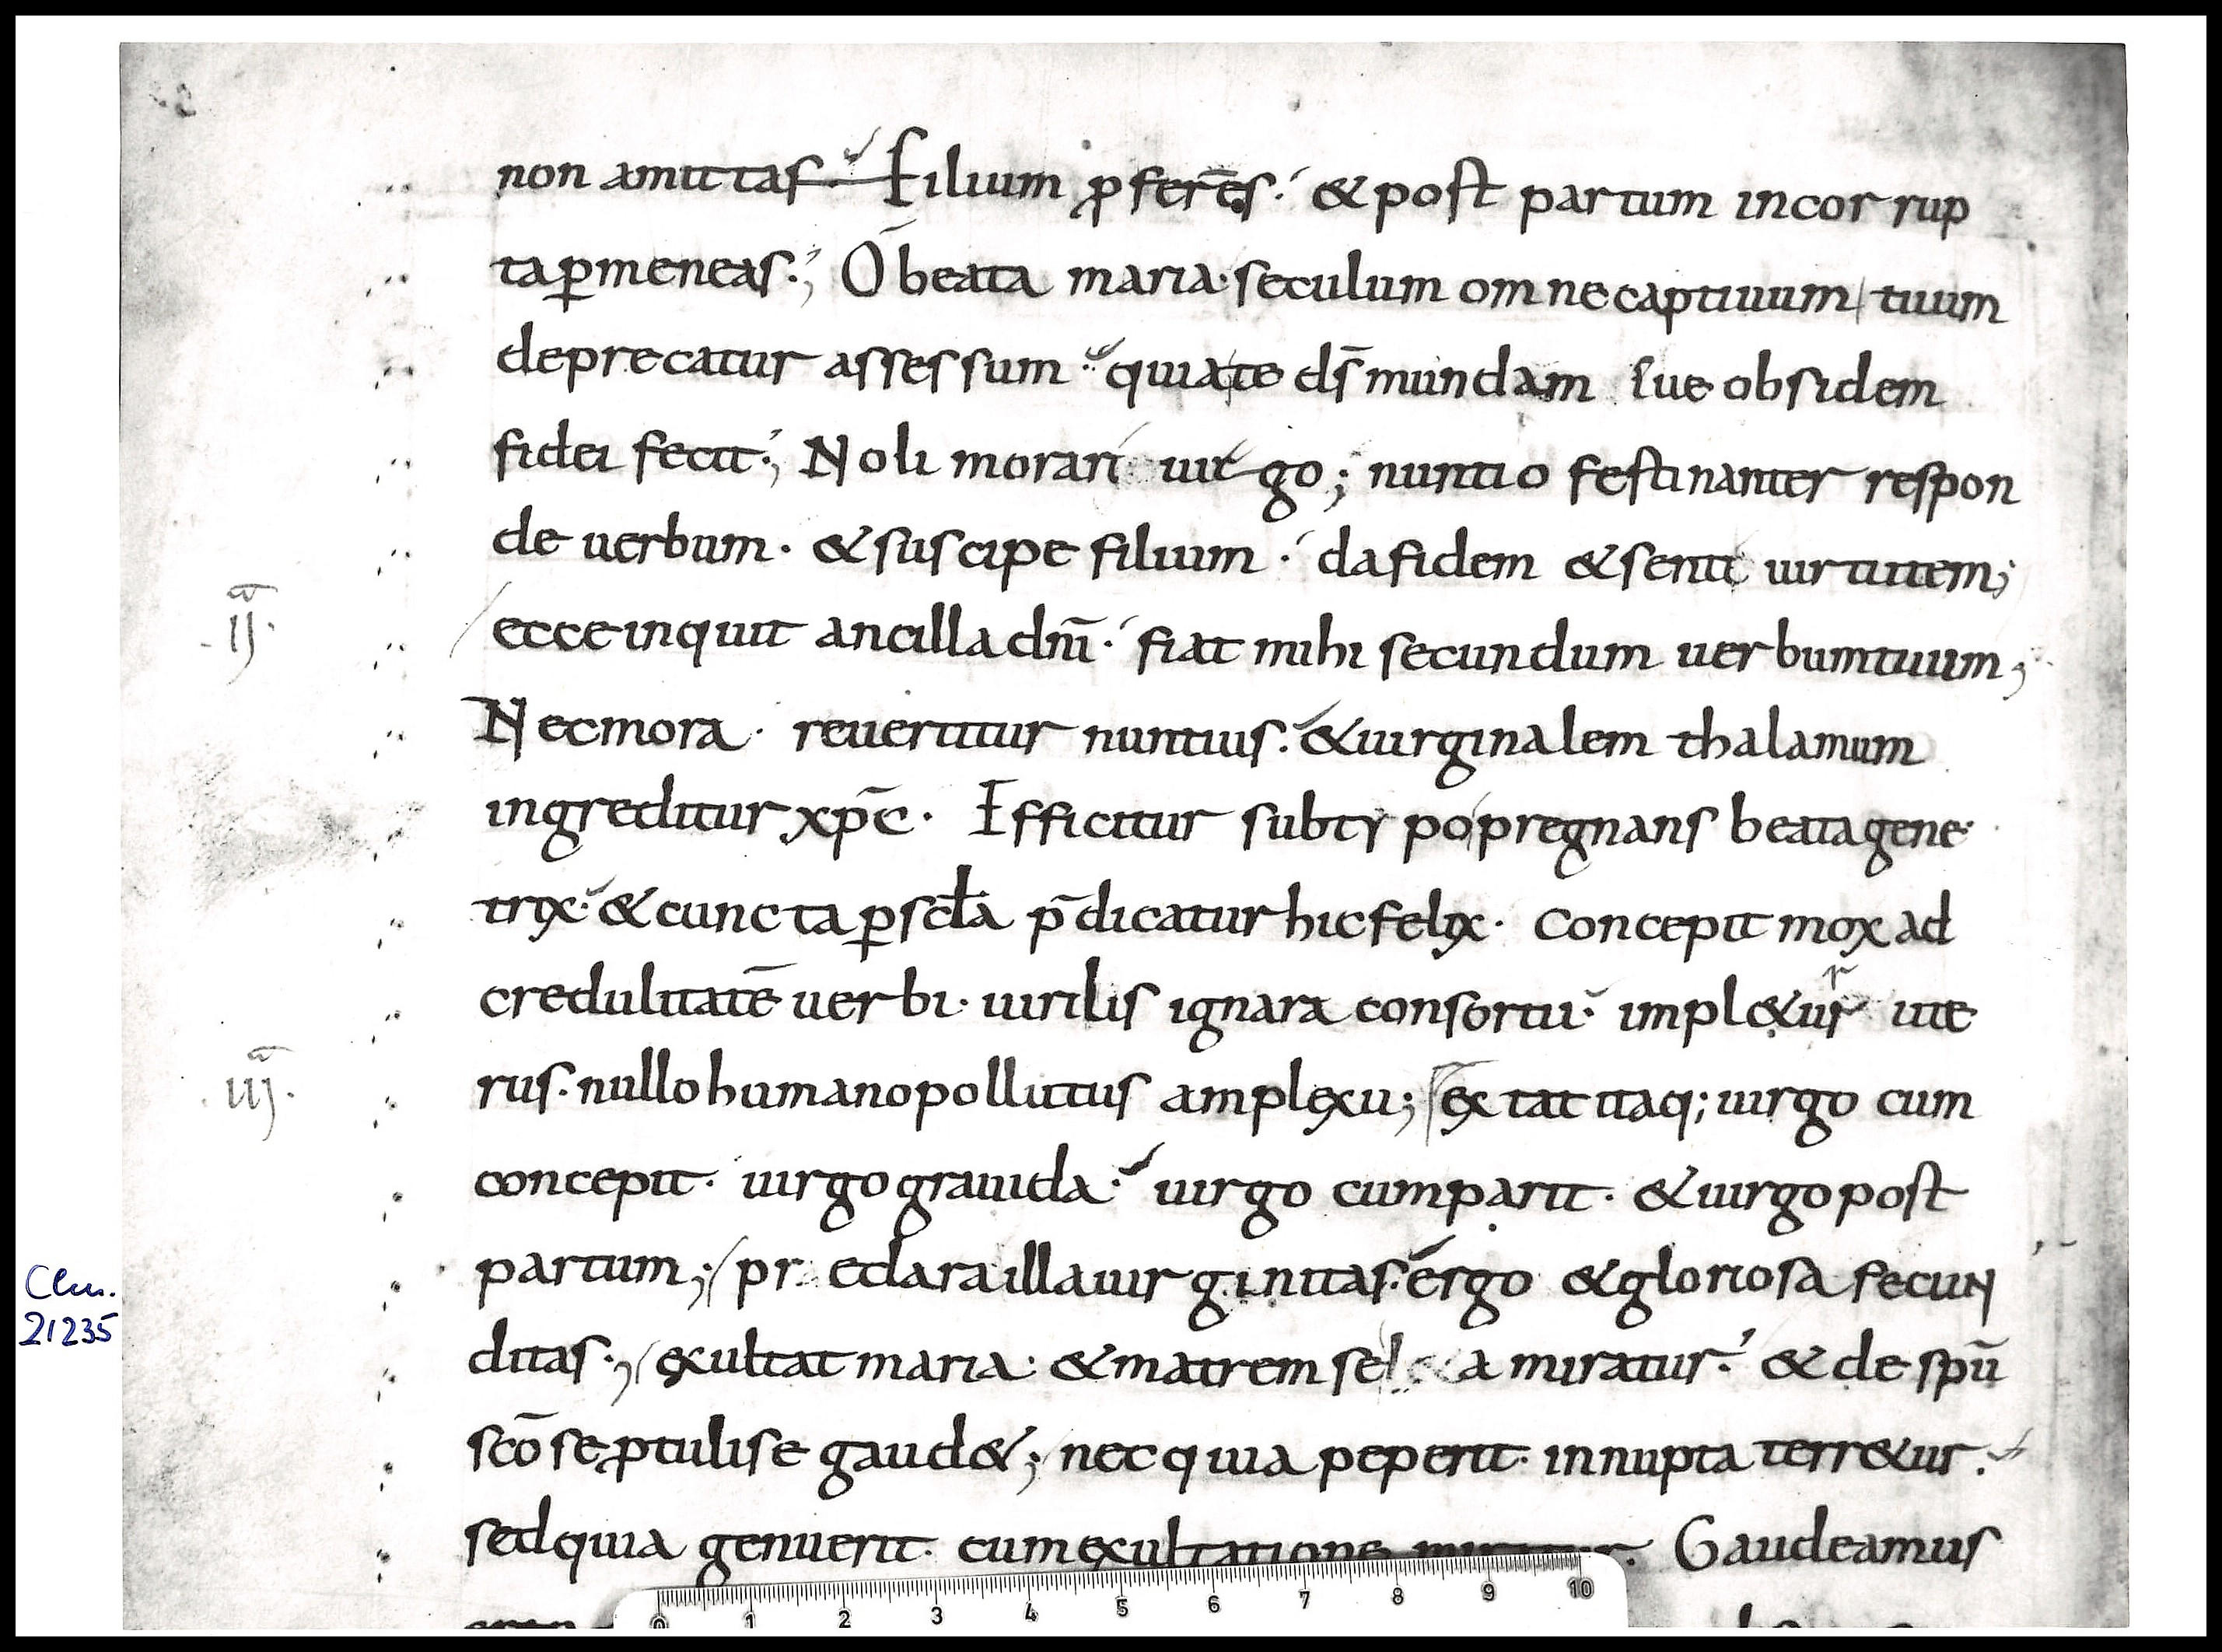 non amittas. Filium ꝓferēs. & post partum incor rup
ta ꝑmeneas.; O beata maria. seculum omne captiuum tuum
deprecatur assessum. quia te ds̄ mundam sue obsidem
fidei fecit.; Noli morari uirgo; nuntio festinanter respon
de uerbum. & suscipe filium. da fidem & senti uirtutem;
.ij.
ecce inquit ancilla dnī. fiat mihi secundum uerbum tuum;
Nec mora. reuertitur nuntius. & uirginalem thalamum
ingreditur xp̄c. Efficitur subty po pregnans beata gene
trix. & cuncta ꝑ scła p̄dicatur hic felix. Concepit mox ad
credulitatē uerbi. uirilis ignara consortii. impl&ur ute
.iij.
rus. nullo humano pollutus amplexu; extat itaq; uirgo cum
concepit. uirgo grauida. uirgo cum parit. & uirgo post
partum; pr eclara illa uirginitas. ergo & gloriosa fecun
Clm.
21235
ditas.; exultat maria. & matrem se a miratur. & de spū
scō se ꝓtulise gaud&; nec quia peperit. innupta terr&ur.
sed quia genuerit. cum exultatione Gaudeamus
0 1 2 3 4 5 6 7 8 9 10